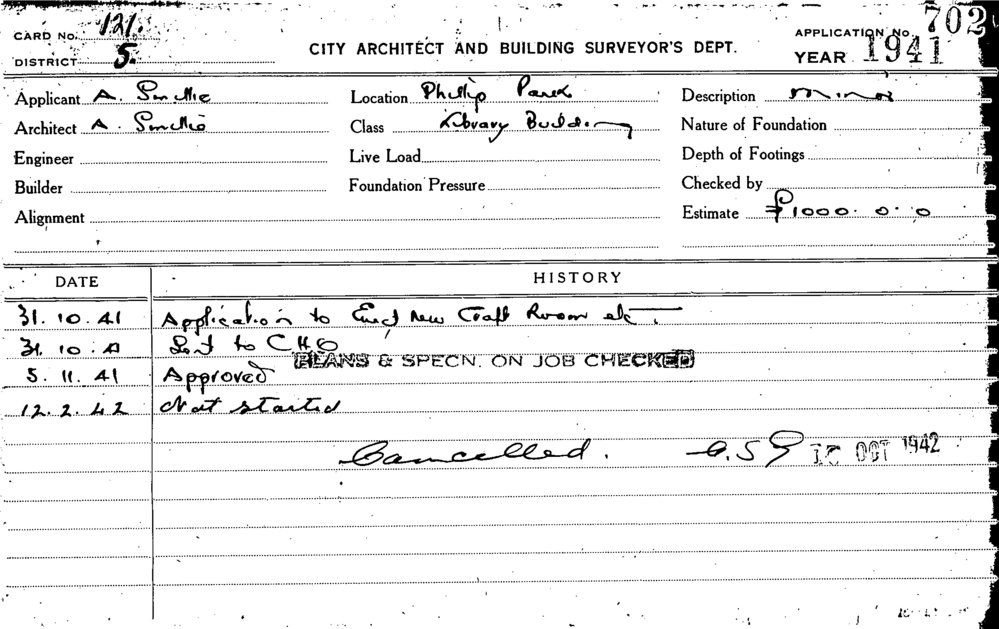 CARD No. 121. CITY ARCHITECT AND BUILDING SURVEYOR'S DEPT. APPLICATION No. 702
DISTRICT 5. YEAR 1941
Applicant A. Smellie Location Phillip Park Description minor
Architect A. Smellie Class Library Building Nature of Foundation
Engineer Live Load Depth of Footings
Builder Foundation Pressure Checked by
Alignment Estimate £1000. 0. 0
DATE HISTORY
31. 10. 41 Application to Erect New Craft Room etc.
31. 10. 41 Sent to C.H.O
PLANS & SPECN. ON JOB CHECKED
5. 11. 41 Approved
12. 2. 42 Not started
Cancelled. OCT 1942